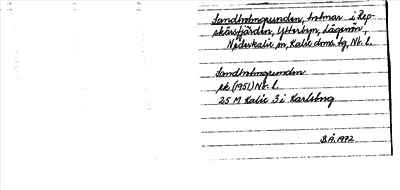 Sandholmgrunden, holmar i Rep-
skärsfjärden, Ytterbyn, Lägenön,
Nederkalix sn, Kalix doms tg, Nb. l.
Sandholmgrunden
ek. (1951) Nb. l.
25 M Kalix 3 i Karlsborg
B.Å. 1972